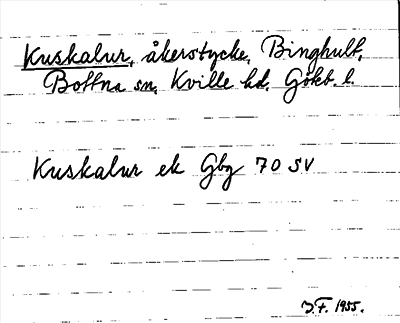 Kuskalur, åkerstycke, Binghult,
Bottna sn, Kville hd. Gökb. l.
Kuskalur ek Gbg 70 SV
J.F. 1955.